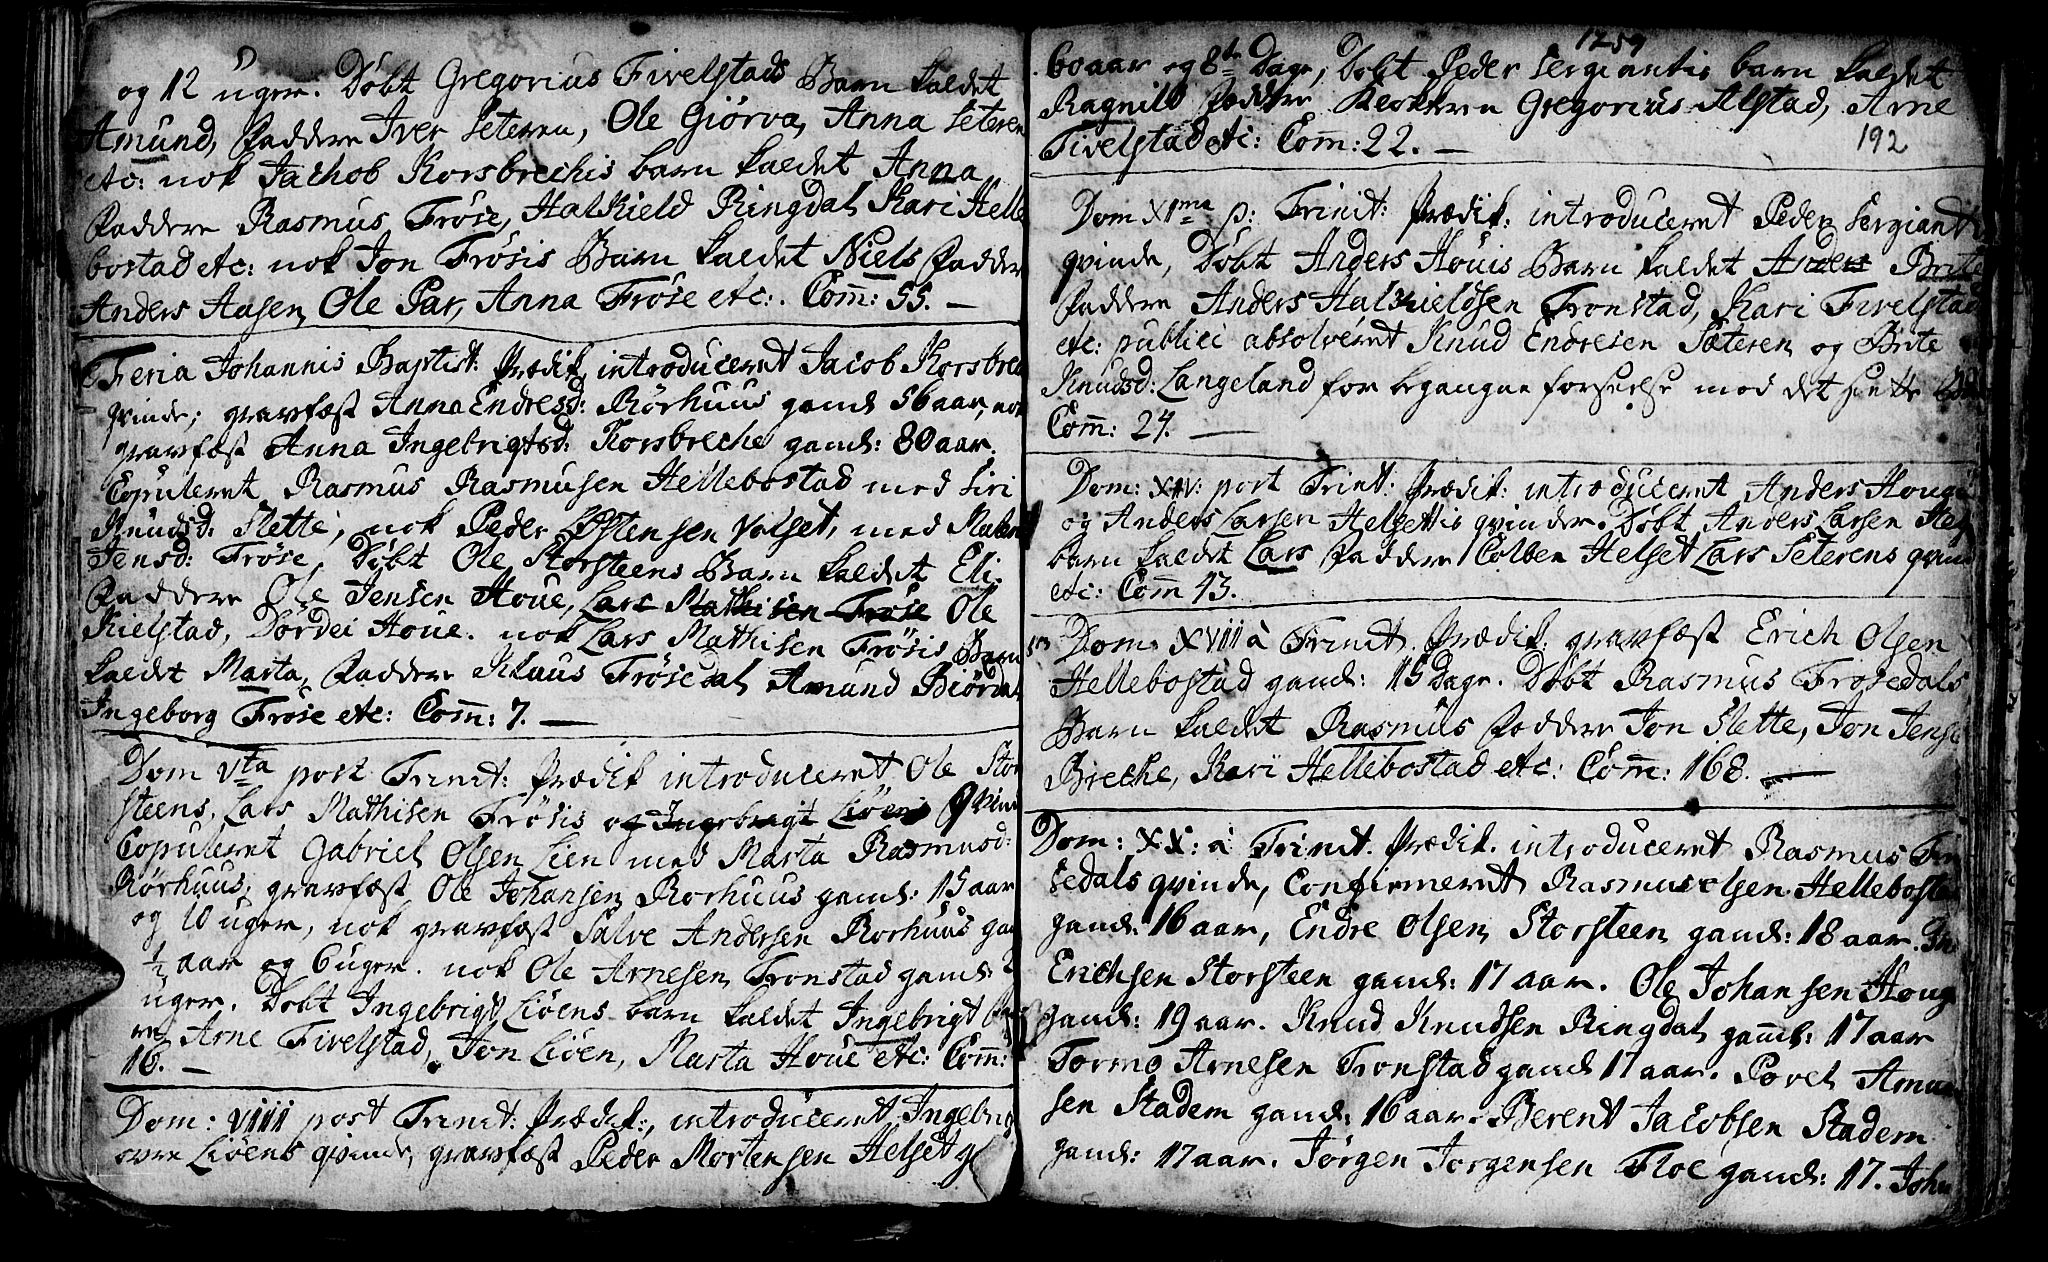 og 12 uger. Döbt Gregorius Fivelstads Barn kaldet
Amund, Faddere Iver Seteren, Ole Giörva, Anna Seteren
etc: nok Jachob Korsbrechis barn kaldet Anna
Faddere Rasmus Fröse, Halkield Ringdal Kari Helle
bostad etc: nok Jon Frösis Barn kaldet Niels Fadder
Anders Aasen, Ole Par, Anna Fröse etc:. Com̄: 55. —
Feria Johannis Baptist: Prædik, introduceret Jacob Korsbre
qvinde; gravfæst Anna Endresd: Rörhuus gamel 56 aar, nok
gravfæst Anna Ingebrigtsd: Korsbreche gamel: 80 aar.
Copuleret Rasmus Rasmusen Hellebostad med Siri
Knudsd: Slette, nok Peder Östensen Volset, med Malen
Jensd: Fröse, Döbt Ole Storsteens Barn kaldet Eli.
Faddere Ole Jensen Houe, Lars Mathisen Fröse Ole
Kielstad, Dordei Houe. nok Lars Mathisen Frösis Barn
kaldet Marta, Faddere Klaus Frösedal Amund Biördal
Ingeborg Fröse etc: Com̄: 7. —
Dom Vta post Trinit: Prædik introduceret Ole Stor
steens, Lars Mathisen Frösis og Ingebrigt Liöens qvind
Copuleret Gabriel Olsen Lien med Marta Rasmusd:
Rörhuus, gravfæst Ole Johansen Rorhuus gamel: 15 aar
og 10 uger, nok gravfæst Salve Andersen Rorhuus ga
½ aar og 6 uger. nok Ole Arnesen Tronstad gamel:
uger. Döbt Ingebrigt Liöens barn kaldet Ingebrigt
re Arne Fivelstad, Jon Liöen, Marta Houe etc: Com̄:
16. —
Dom: VIIII post Trinit: Prædik:, introduceret Ingebrig
Liöens qvinde, gravfæst Peder Mortensen Helset g
1759
60 aar og 8te Dage, Döbt Peder Sergiantis barn kaldet
Ragnild Faddere Gregorius Alstad, Arne
Fivelstad etc: Com̄: 22. —
192
Dom XIma p: Trinit: Prædik: introduceret Peder Sergiant
qvinde, Döbt Anders Houis Barn kaldet Anders Brite
Faddere Anders Halkieldsen Tronstad, Kari Fivelstad
etc: publici absolveret Knud Endresen Sæteren og Brite
Knudsd: Langeland for begangne forseelse mod det siette
Com̄: 24. —
Dom: XIV: post Trinit: Prædik: introduceret Anders Houg
og Anders Larsen Helsettis qvinder. Döbt Anders Larsen Hels
barn kaldet Lars Faddere Colben Helset Lars Seterens qvin
etc: Com̄ 43.
Dom: XVIII à Trinit. Prædik: gravfæst Erich Olsen
Hellebostad gamel: 15 Dage. Döbt Rasmus Frosedals
Barn kaldet Rasmus Faddere Jon Slette, Jon Jens
Breche, Kari Hellebostad etc: Com̄: 168. —
Dom: XX: à Trinit. Prædik. introduceret Rasmus Frö
sedals qvinde, Confirmeret Rasmus Olsen Hellebosta
gamel: 16 aar, Endre Olsen Storsteen gamel: 18 aar.
Erichsen Storsteen gamel: 17 aar. Ole Johansen Houg
gamel: 19 aar. Knud Knudsen Ringdal gamel: 17 aar
Tormo Arnesen Tronstad gamel 17 aar. Povel Amun
sen Stadem gamel: 16 aar. Berent Jacobsen Stadem
gamel: 17 aar. Jörgen Jorgensen Floe gamel: 17. Joha